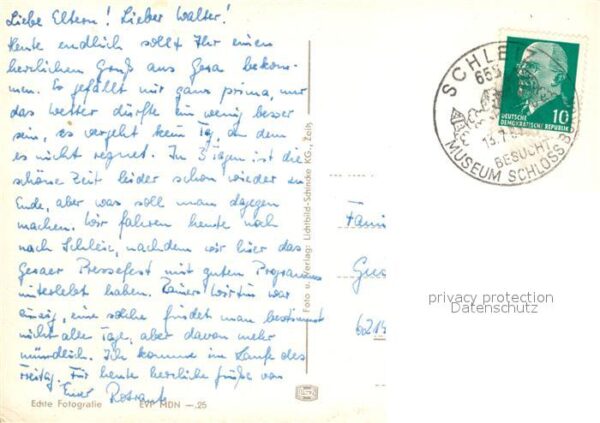 Liebe Eltern! Lieber Walter!
Heute endlich sollt Ihr einen
herzlichen Gruß aus Gera bekom-
men. Es gefällt mir ganz prima, nur
das Wetter dürfte ein wenig besser
sein, es vergeht kein Tag, an dem
es nicht regnet. In 3 Tagen ist die
schöne Zeit leider schon wieder zu
Ende, aber was soll man dagegen
machen. Wir fahren heute noch
nach Schleiz, nachdem wir hier das
Geraer Pressefest mit guten Programm
miterlebt haben. Wirtin war
einzig, eine solche findet man bestimmt
nicht alle Tage, aber davon mehr
mündlich. Ich komme im Laufe des
Freitag. Für heute herzliche Grüße von
Eurer
Echte Fotografie EVP MDN —.25
Foto u. Verlag: Lichtbild-Schincke KG., Zeitz
SCHLEIZ
653
BESUCHT
MUSEUM SCHLOSS
10
DEUTSCHE
DEMOKRATISCHE REPUBLIK
Fami
privacy protection
Datenschutz